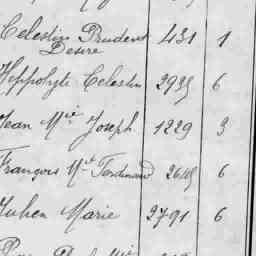 Celestin Prudent 431 1
Desire
Hyppolyte Celestin 2935 6
Jean Mie Joseph 1229 3
François Mie Ferdinand 6
Julien Marie 2791 6